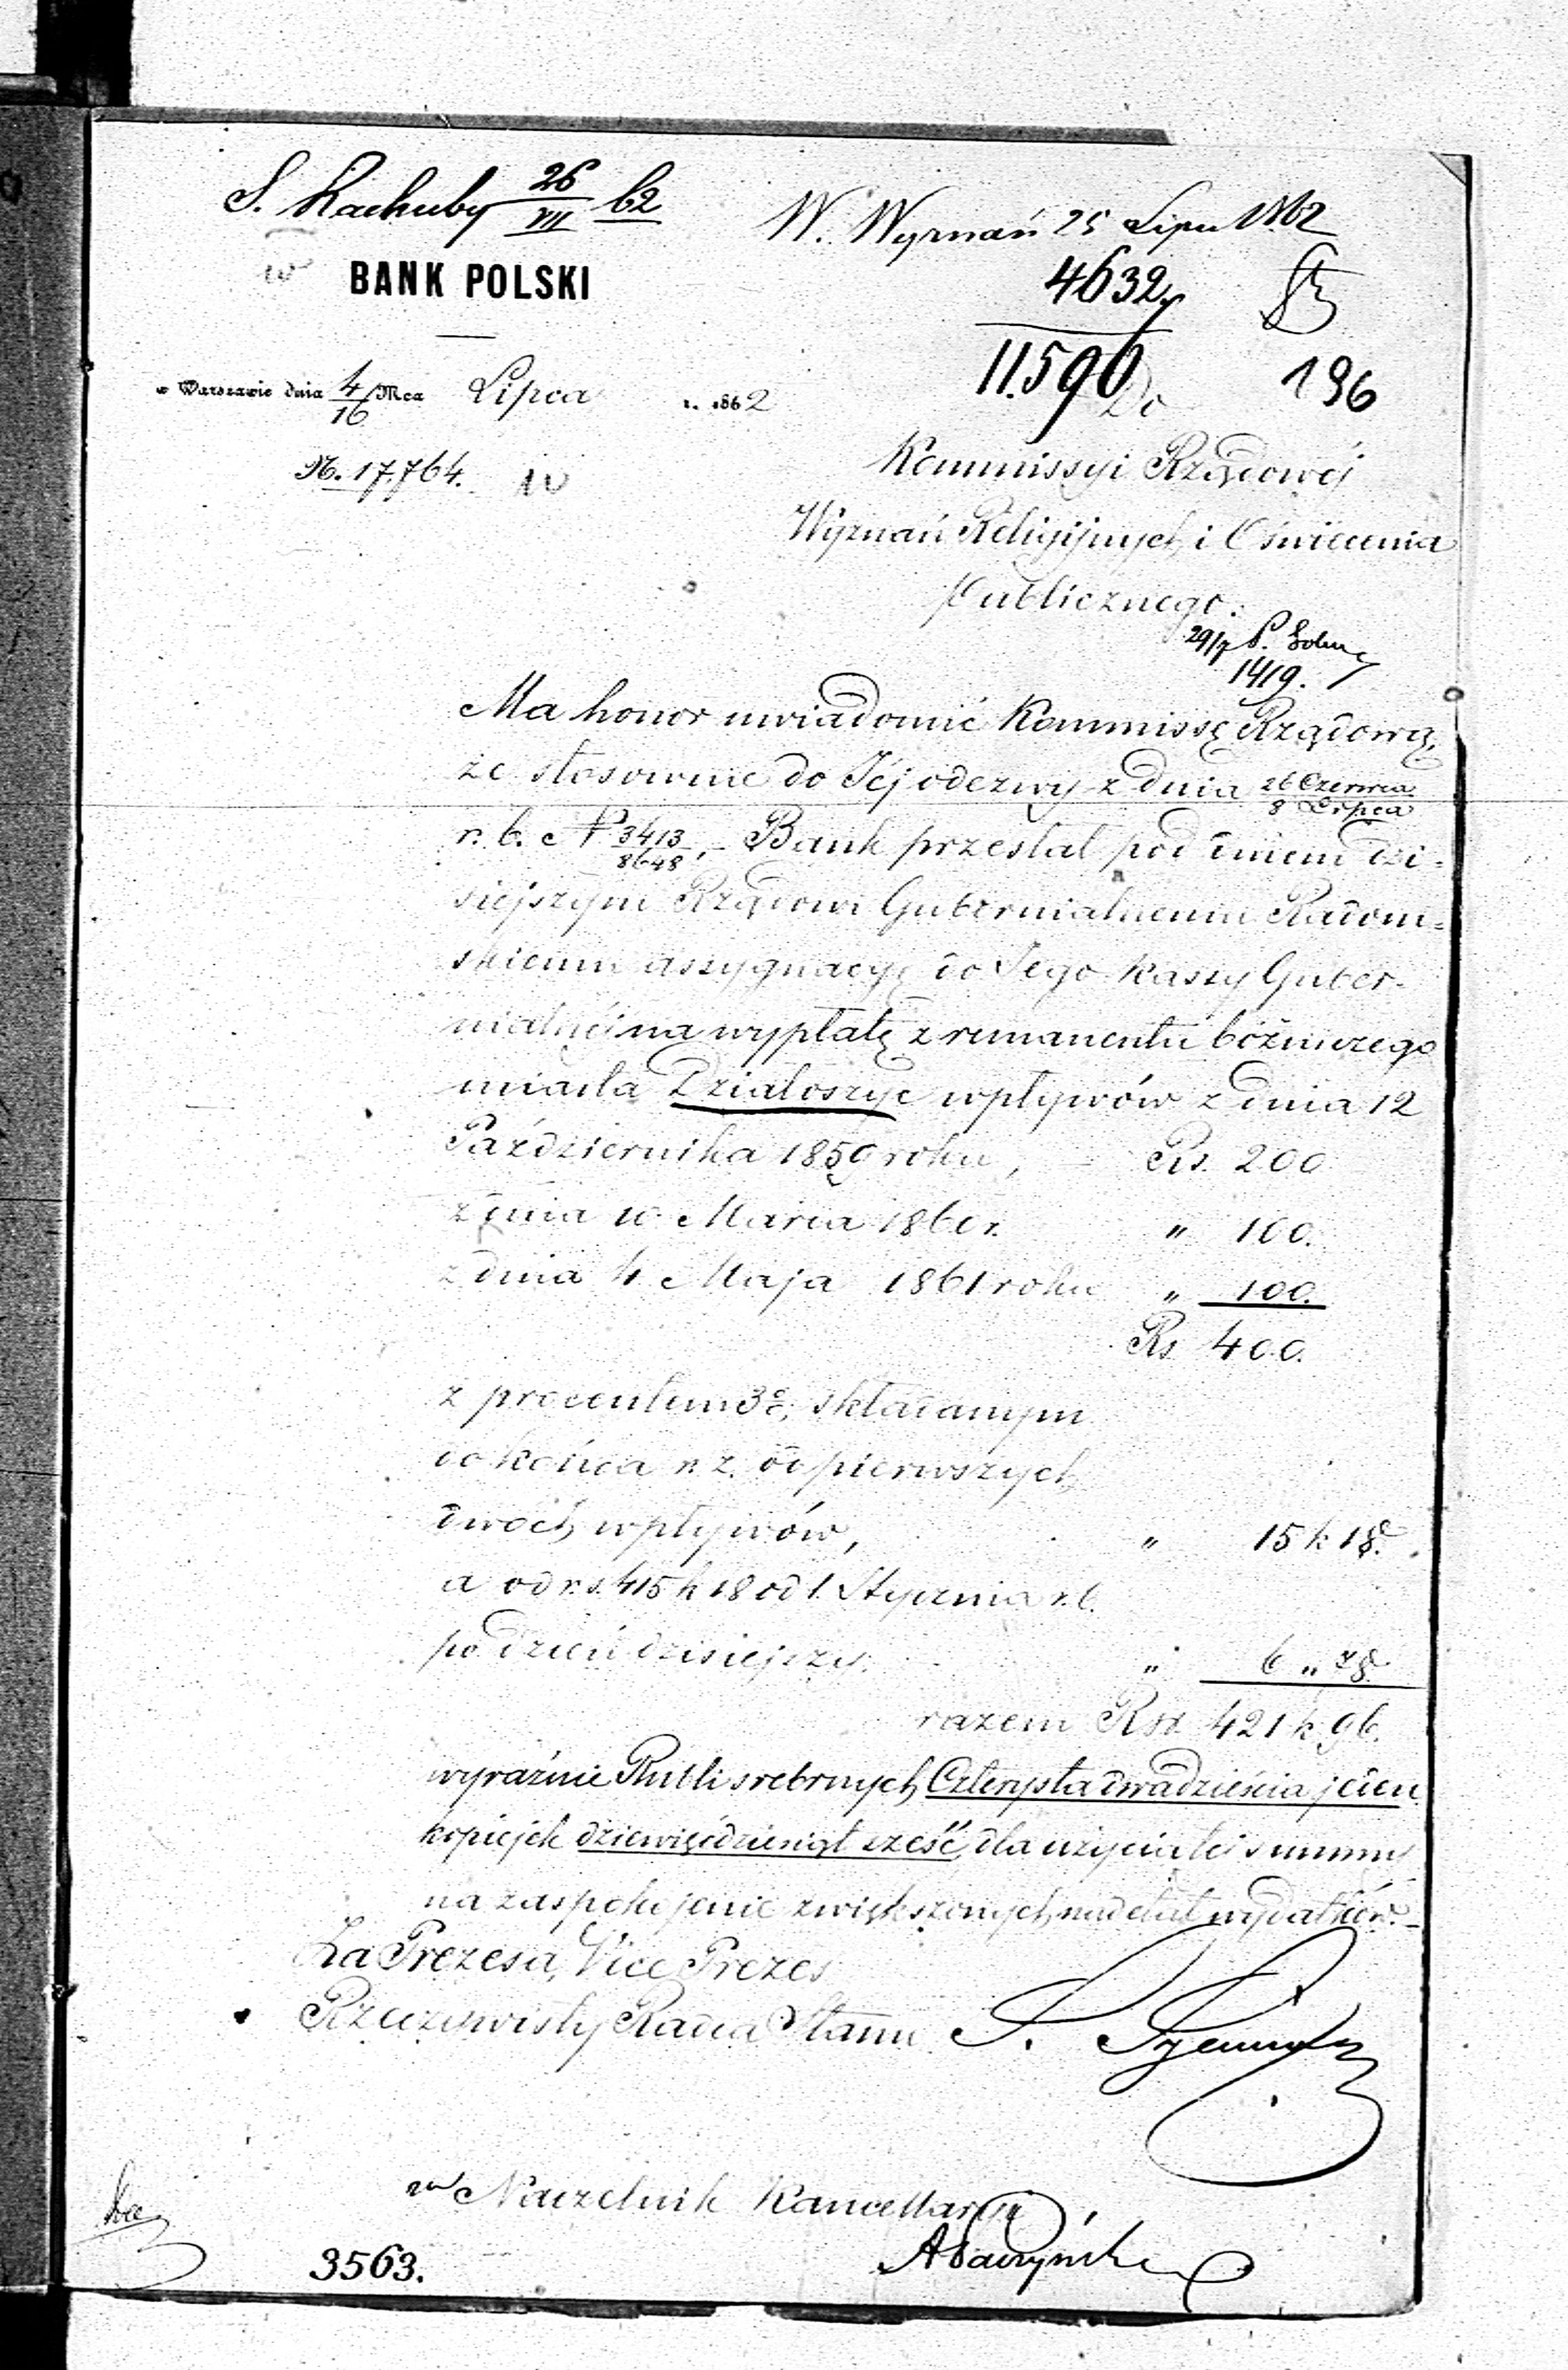 S. Rachuby 26/VII 62
W. Wyznań 25 Lipca 1862
4632
11.590
196
BANK POLSKI
w Warszawie dnia 4/16 Mca Lipca r. 1862
N. 17,764.
Do
Kommissyi Rządowéj
Wyznań Religijnych i Oświecenia
Publicznego.
29/7 P.
1419.
Ma honor uwiadomić Kommissę Rządową,
że stosownie do Jéj odezwy z dnia 26 Czerwca/8 Lipca
r. b. N 3413/8648, – Bank przesłał pod dniem dzi-
siejszym Rządowi Gubernialnemu Radom-
skiemu assygnacyę do Jego Kassy Guber-
nialnéj na wypłatę z remanentu bóżniczego
miasta Działoszyc wpływów z dnia 12
Października 1859 roku, – Rs. 200
z dnia 10 Marca 1860 r. " 100.
z dnia 4 Maja 1861 roku " 100.
Rs 400.
z procentem 3%, składanym
do końca r. z. od pierwszych
dwóch wpływów, " 15 k 18.
a od r.s. 415 k 18 od 1. Stycznia r. b.
po dzień dzisiejszy. " 6 " 78.
razem Rsr. 421 k 96.
wyraźnie Rubli srebrnych Czterysta dwadzieścia jeden
kopiejek dziewięćdziesiąt sześć, dla użycia téj summy
na zaspokojenie zwiększonych nad etat wydatków. –
Za Prezesa, Vice Prezes
Rzeczywisty Radca Stanu
Naczelnik Kancellaryi
3563.